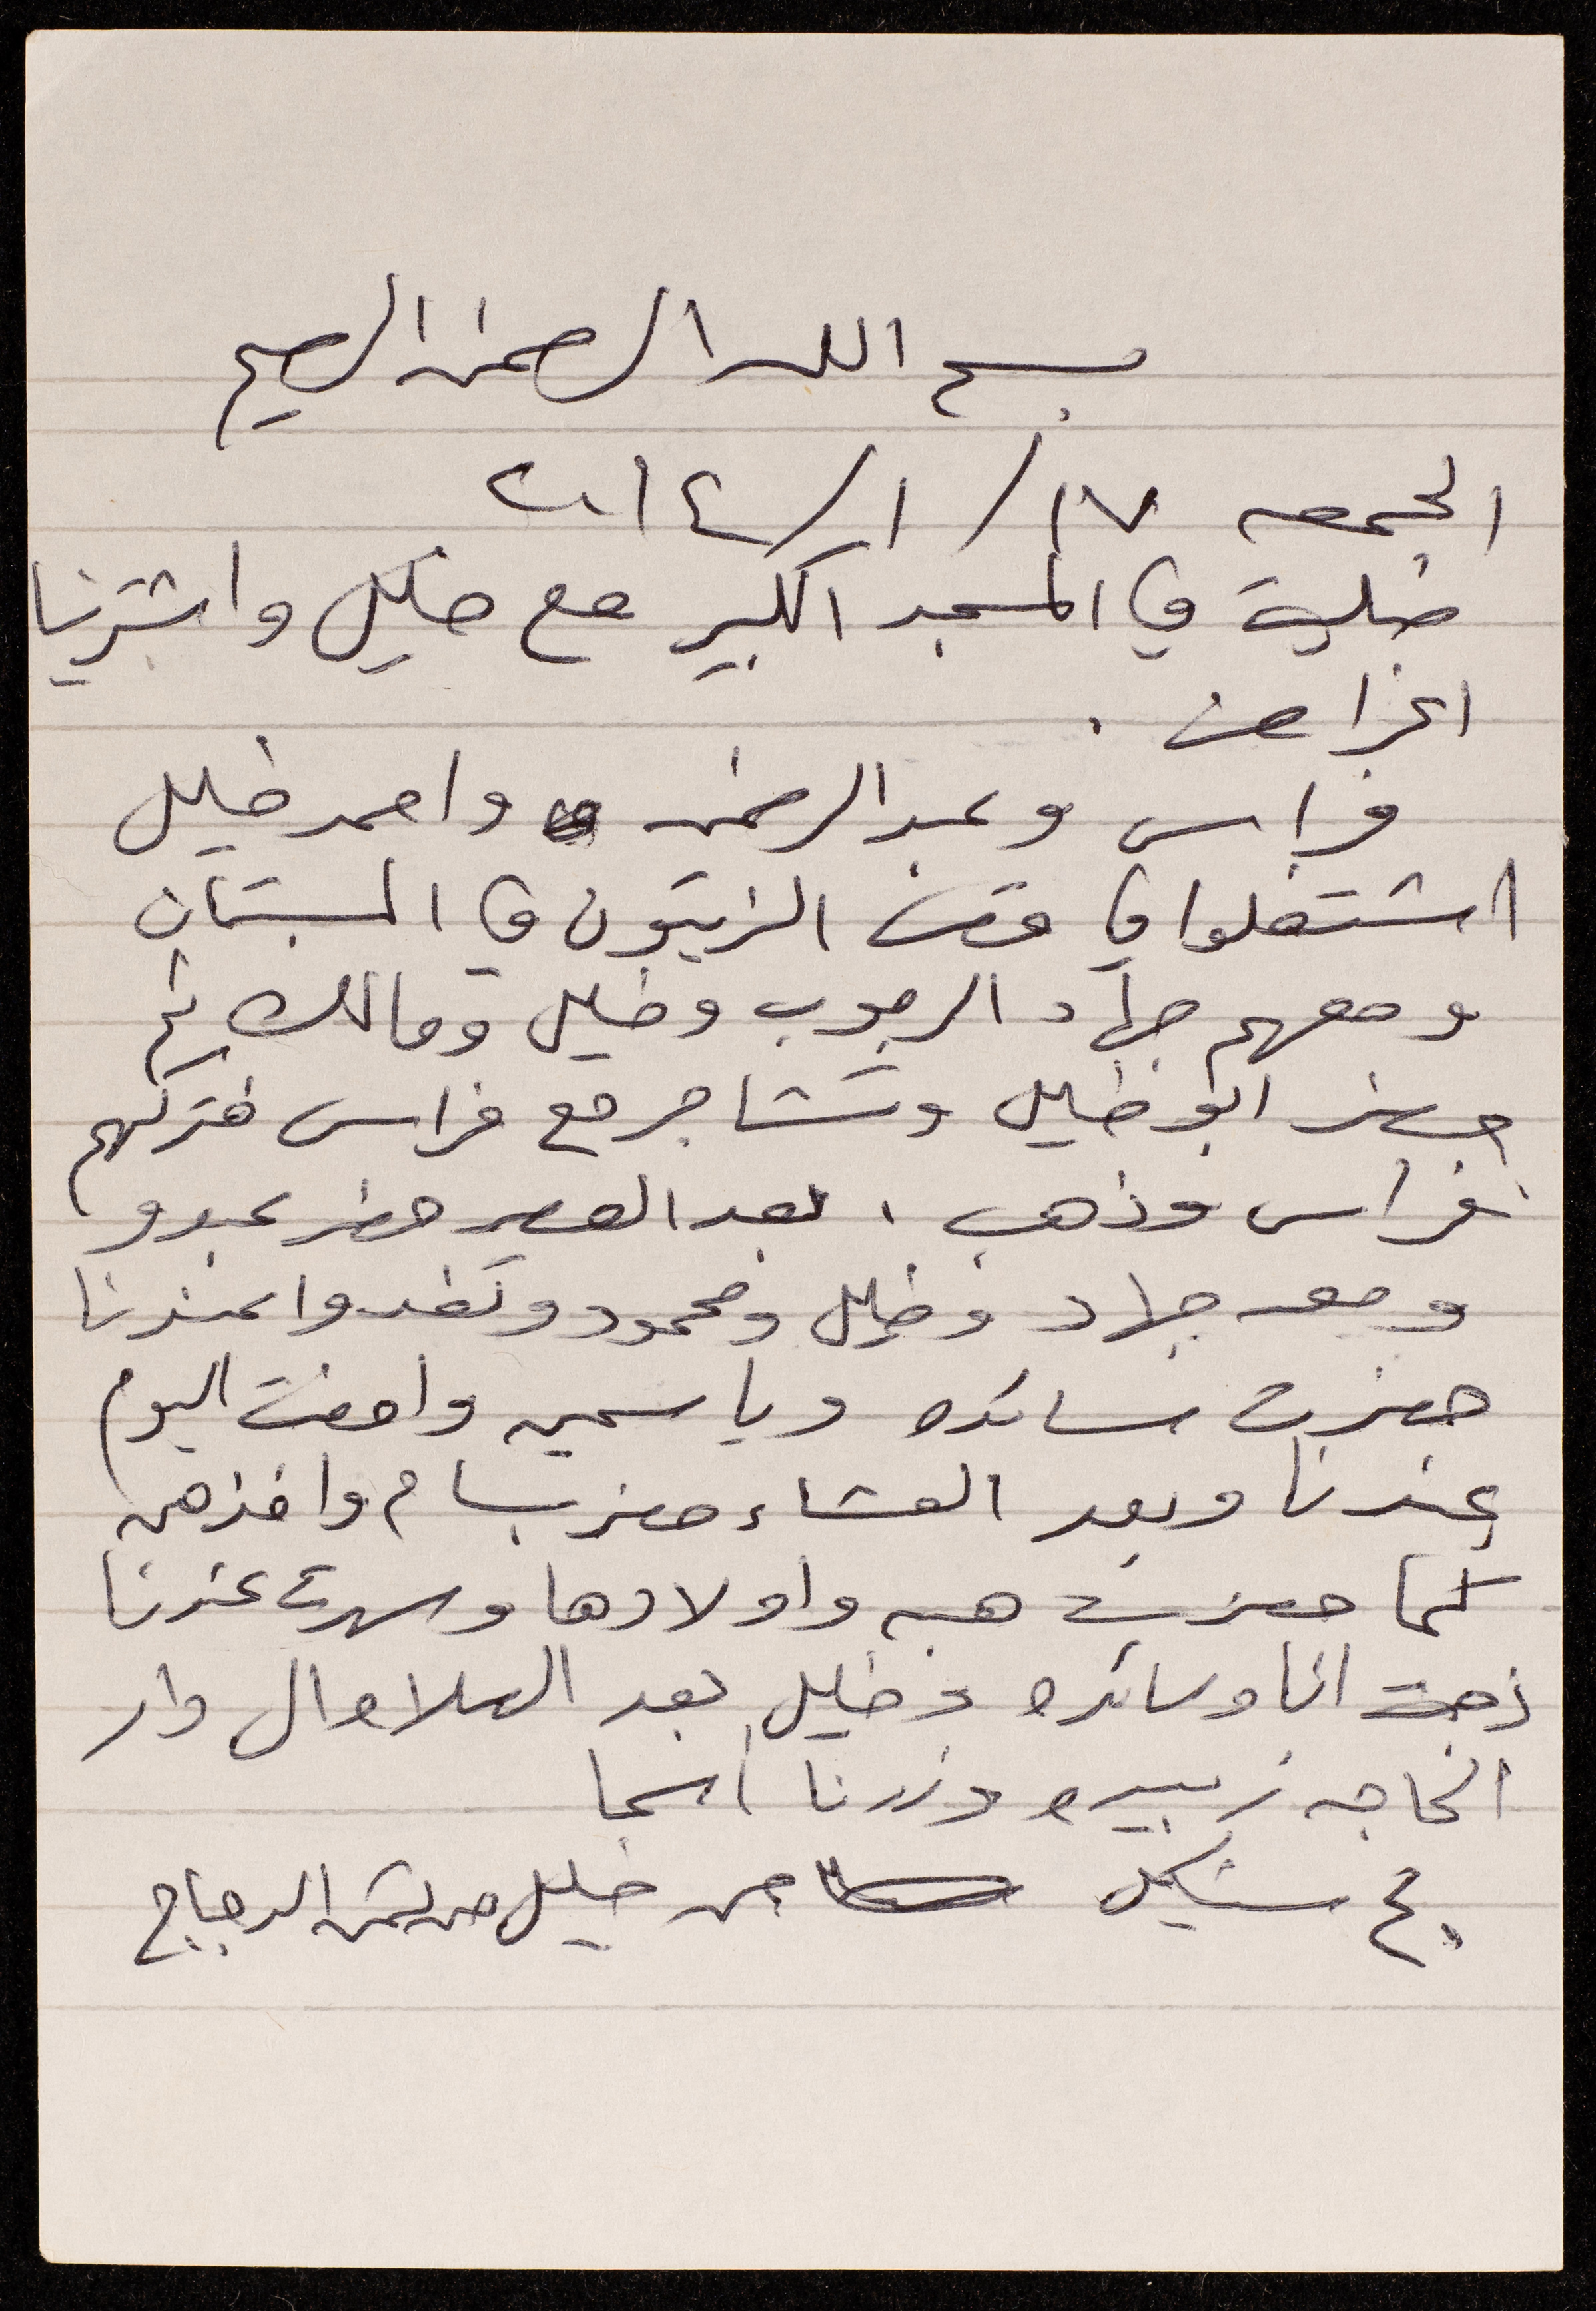 بسم الله الرحمن الرحيم
الجمعه ١٧ / ١ / ٢٠١٤
صليت في المسجد الكبير مع خليل واشترينا
اغراض .
فراس وعبد الرحمن واحمد خليل
اشتغلوا في قص الزيتون في البستان
ومعهم جهاد الرجوب وخليل ومالك ثم
حضر ابو خليل وتشاجر مع فراس فتركهم
فراس وذهب ، بعد العصر حضر عبدو
ومعه جهاد وخليل ومحمود وتغدوا عندنا
حضرت سائده وياسمين وامضت اليوم
عندنا وبعد العشاء حضر بسام واخذهن
كما حضرت هبه واولادها وسهرت عندنا
ذهبت انا وسائده وخليل بعد الصلاه ال دار
الحاجه زبيره وزرنا اسما
شيكل من خليل من ثمن الدجاج